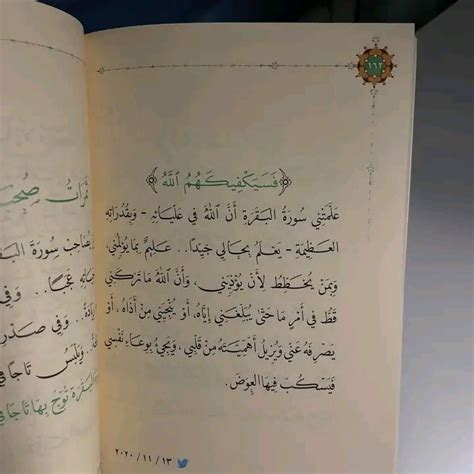 ١١٢
﴿فَسَيَكْفِيكَهُمُ اللَّهُ﴾
عَلَّمَتْنِي سُورَةُ البَقَرَةِ أَنَّ اللهَ فِي عَلْيَائِهِ - وَبِقُدْرَاتِهِ
العَظِيمَةِ - يَعْلَمُ بِحَالِي جَيِّدًا.. عَلِيمٌ بِمَا يُؤْلِمُنِي،
وَبِمَن يُخَطِّطُ لِأَنْ يُؤْذِيَنِي، وَأَنَّ اللهَ مَا تَرَكَنِي
قَطُّ فِي أَمْرٍ مَا حَتَّى يُبَلِّغَنِي إِيَّاهُ، أَوْ يُنْجِيَنِي مِنْ أَذَاهُ، أَوْ
يَصْرِفَهُ عَنِّي وَيُزِيلَ أَهَمِّيَّتَهُ مِنْ قَلْبِي، وَيَجِيءُ بِوِعَاءِ نَفْسِي
فَيَسْكُبَ فِيهَا العِوَضَ.
٢٠٢٠/١١/١٣
ثَمَرَاتُ
سُورَةَ
عَجَبًا.. وَفِي
.. وَفِي صَدْرِ
.. وَيَلْبَسُ تَاجًا فِي
البَقَرَةِ تُوِّجَ بِهَا تَاجًا فِي